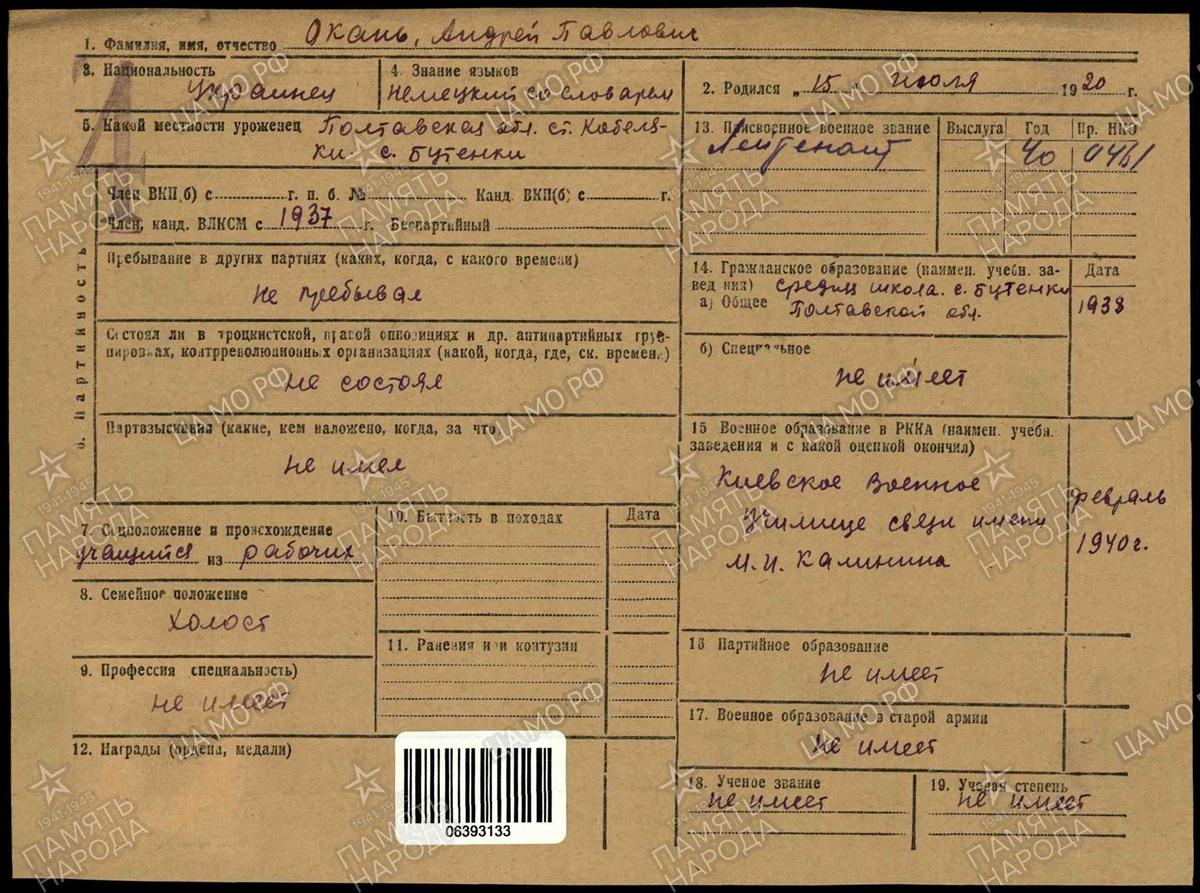 1. Фамилия, имя, отчество Окань, Андрей Павлович
3. Национальность
Украинец
4. Знание языков
Немецкий со словарем
2. Родился „15" июля 1920 г.
5. Какой местности уроженец Полтавская обл. ст. Кобеля-
ки с. Бутенки
13. Присвоенное военное звание
Выслуга
Год
Пр. НКО
Лейтенант
40
0461
6. Партийность
Член ВКП(б) с г. п. б. № Канд. ВКП(б) с г.
Член, канд. ВЛКСМ с 1937 г. Беспартийный
Пребывание в других партиях (каких, когда, с какого времени)
Не пребывал
Состоял ли в троцкистской, правой оппозициях и др. антипартийных груп-
пировках, контрреволюционных организациях (какой, когда, где, ск. времени)
не состоял
Партвзыскания (какие, кем наложено, когда, за что)
не имел
14. Гражданское образование (наимен. учебн. за-
вед них) средняя школа. с. Бутенки
а) Общее Полтавской обл.
Дата
1938
б) Специальное
не имеет
15 Военное образование в РККА (наимен. учебн.
заведения и с какой оценкой окончил)
Киевское Военное
Училище связи имени
М.И. Калинина
февраль
1940 г.
7. Соцположение и происхождение
учащийся из рабочих
8. Семейное положение
холост
9. Профессия специальность)
не имеет
10. Бытность в походах
Дата
11. Ранения или контузии
12. Награды (ордена, медали)
16 Партийное образование
не имеет
17. Военное образование в старой армии
не имеет
18. Ученое звание
не имеет
19. Ученая степень
не имеет
06393133
ПАМЯТЬ
НАРОДА
1941-1945
ЦАМО.РФ